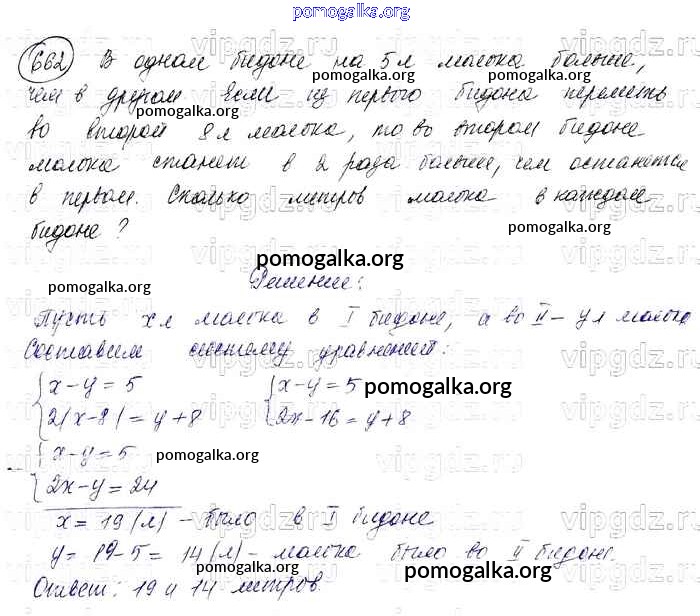 pomogalka.org
662 В одном бидоне на 5 л молока больше,
pomogalka.org pomogalka.org
чем в другом Если из первого бидона перелить
во второй 8 л молока, то во втором бидоне
pomogalka.org
молока станет в 2 раза больше, чем останется
в первом. Сколько литров молока в каждом
бидоне?
pomogalka.org
pomogalka.org
pomogalka.org
Решение:
Пусть x л молока в I бидоне, а во II – y л молока
Составим систему уравнений:
x - y = 5 x - y = 5 pomogalka.org
2(x-8) = y+8 2x-16 = y+8
x - y = 5 pomogalka.org
2x - y = 24
x = 19 (л) – было в I бидоне
y = 19-5 = 14 (л) – молока было во II бидоне.
Ответ: 19 и 14 литров.
pomogalka.org
vipgdz.ru